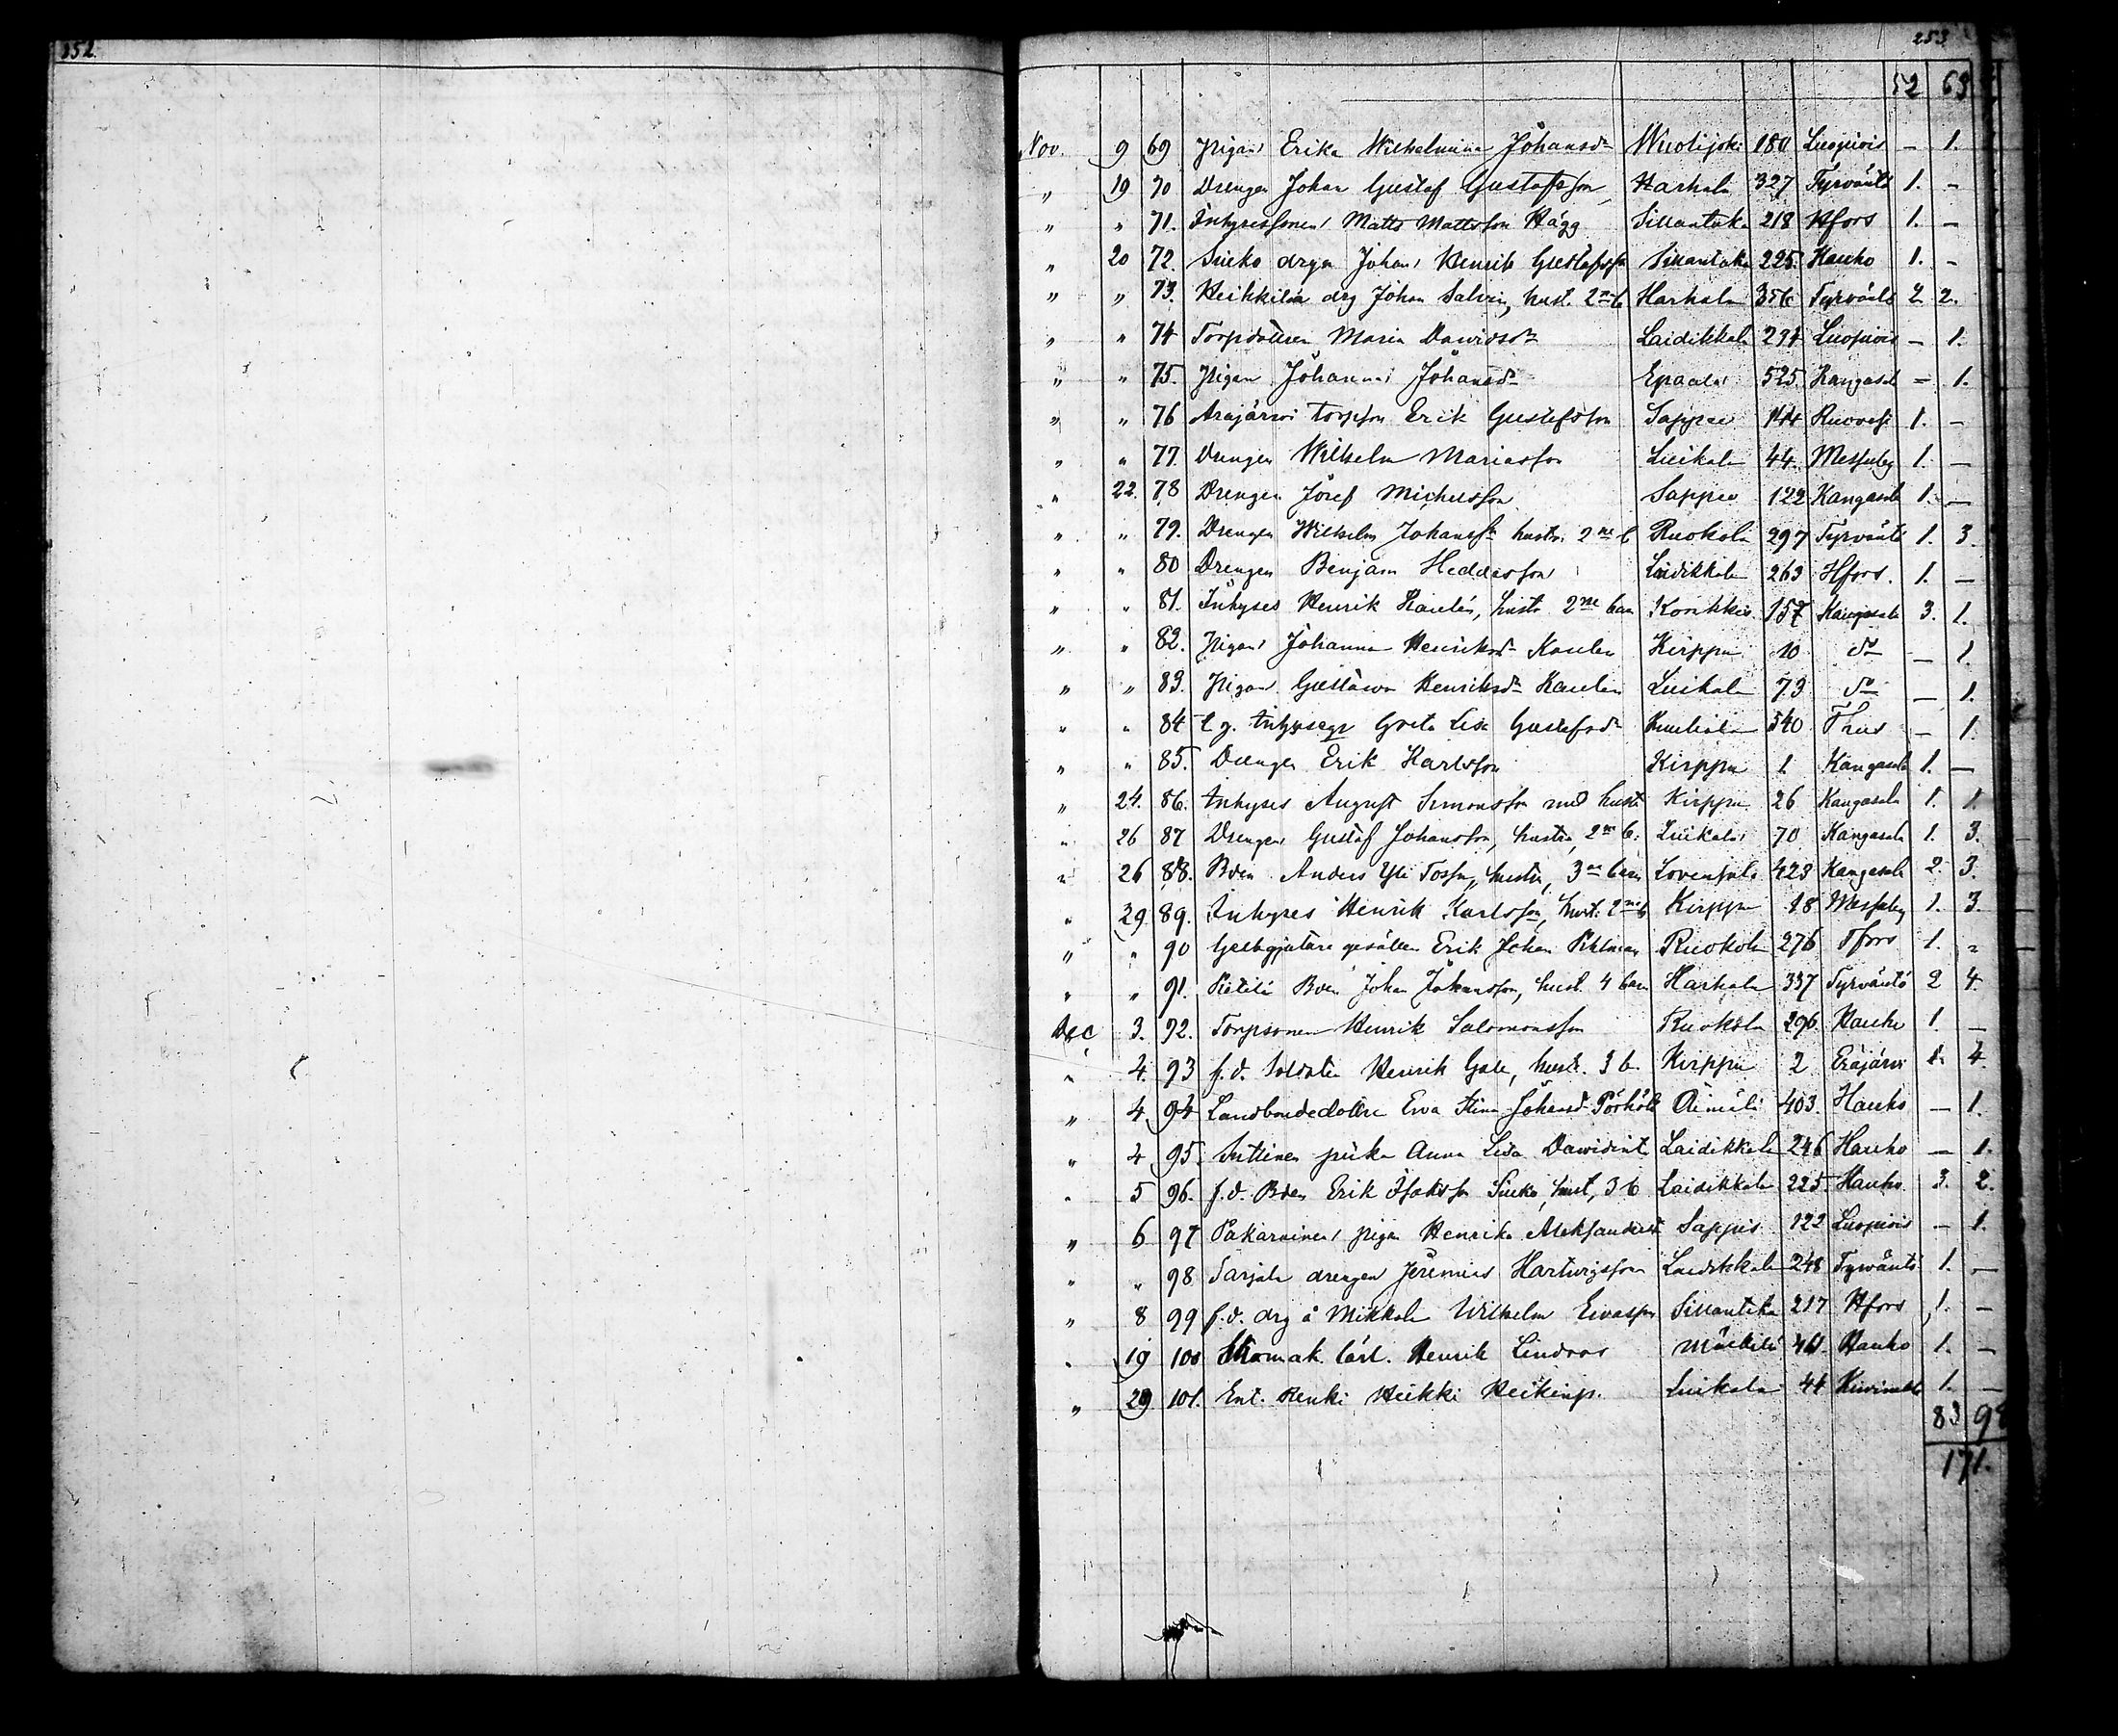 252.
253
52 63
Nov. 9 69 Pigan Erika Wilhelmina Johansdr Wuolijoki 180 Luopiois — 1.
" 19 70 Drengen Johan Gustaf Gustafsson Harhala 327 Tyrväntö 1. —
" " 71. Inhysessonen Matts Mattsson Hägg Sillantaka 218 Hfors 1. —
" 20 72. Sueko drgn Johan Henrik Gustafsson Sillantaka 225. Hauho 1. —
" " 73. Heikkilä drg Johan Salvin, hust. 2ne b Harhala 356 Tyrväntö 2 2.
" " 74 Torpdottren Maria Davidsdr Laidikkala 294 Luopiois — 1.
" " 75. Pigan Johanna Johansdr Epaala 525. Kangasala — 1.
" " 76 Arajärvi torpson Erik Gustafsson Sappee 144 Ruovesi 1. —
" " 77. Drengen Wilhelm Mariasson Luikala 44. Messuby 1. —
" 22. 78 Drengen Josef Michelsson Sappee 122 Kangasala 1. —
" " 79. Drengen Wilhelm Johansson hustr. 2ne b Ruokola 297 Tyrväntö 1. 3.
" " 80 Drengen Benjam Heddasson Laidikkala 263 Hfors. 1. —
" " 81. Inhyses Henrik Kaulén, hustr 2ne barn 157 Kangasala 3. 1.
" " 82. Pigan Johanna Henriksdr Kaulen Kirppu 10 do — 1.
" " 83. Pigan Gustava Henriksdr Kaulen Luikala 73 do — 1.
" " 84 Greta Lisa Gustafsdr Kuuliala 540 — 1.
" " 85. Drengen Erik Karlsson Kirppu 1 Kangasala 1. —
" 24. 86. Inhyses August Simonsson med hustr Kirppu 26 Kangasala 1. 1.
" 26 87 Drengen Gustaf Johansson, hustru, 2ne b. Luikala 70 Kangasala 1. 3.
" 26 88. Bden Anders Yli Tossu, hustru, 3ne barn 423 Kangasala 2. 3.
" 29 89. Inhyses Henrik Karlsson, hust. 2ne b Kirppu 18 Messuby 1. 3.
" " 90 Gelbgjutare gesällen Erik Johan Pihlman Ruokola 276 Tfors 1. "
" " 91. Pietilä Bden Johan Johansson, hust. 4 barn Harhala 337 Tyrväntö 2 4.
Dec 3. 92. Torpsonen Henrik Salomonsson Ruokola 296. Hauho 1. —
" 4. 93 f.d. Soldaten Henrik Gale, hustr. 3 b. Kirppu 2 Eräjärvi 1. 4.
" 4 94 Landbondedottre Eva Stina Johansd Pörhölä Äimälä 403. Hauho — 1.
" 4 95. Suttinen piika Anna Lisa Davidint. Laidikkala 246 Hauho — 1.
" 5 96. f.d. Bden Erik Isaksson Sueko, hust, 3 b Laidikkala 225. Hauho 3. 2.
" 6 97 Pakarainen pigan Henrika Aleksandersd Sappis 122 Luopiois — 1.
" " 98 Sarjala drengen Jeremias Hartvigsson Laidikkala 248 Tyrväntö 1. —
" 8 99 f.d. drg å Mikkola Wilhelm Evasson Sillantaka 217 Hfors 1. —
" 19 100 Skomak. lärl. Henrik Lindroos Mälkilä 461. Hauho 1. —
" 29 101. Ent. Renki Heikki Heikinp. Luikala 44 1. —
83 98
171.